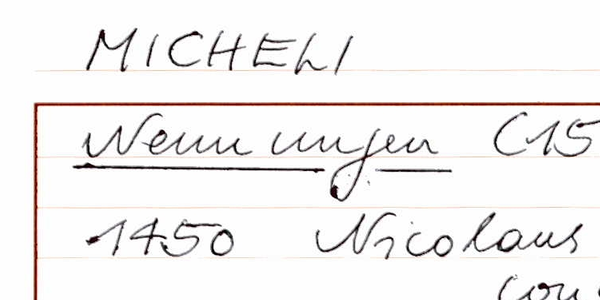 MICHELI
Nennungen C15
1450 Nicolaus